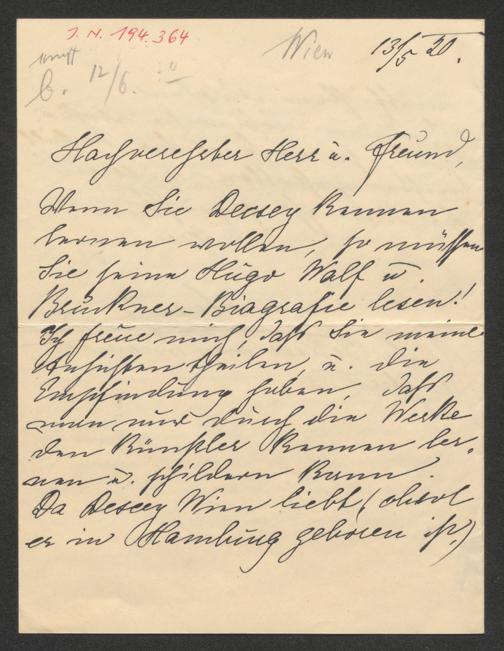 I. N. 194.364
Wien 13/5 20.
b. 12/6. 20
Hochverehrter Herr u. Freund,
Wenn Sie Decsey kennen
lernen wollen, so müssen
Sie seine Hugo Wolf u.
Bruckner-Biografie lesen!
Ich freue mich, daß Sie meine
Ansichten theilen, u. die
Empfindung haben, daß
man nur durch die Werke
den Künstler kennen ler-
nen u. schildern kann.
Da Decsey Wien liebt (obwol
er in Hamburg geboren ist,)